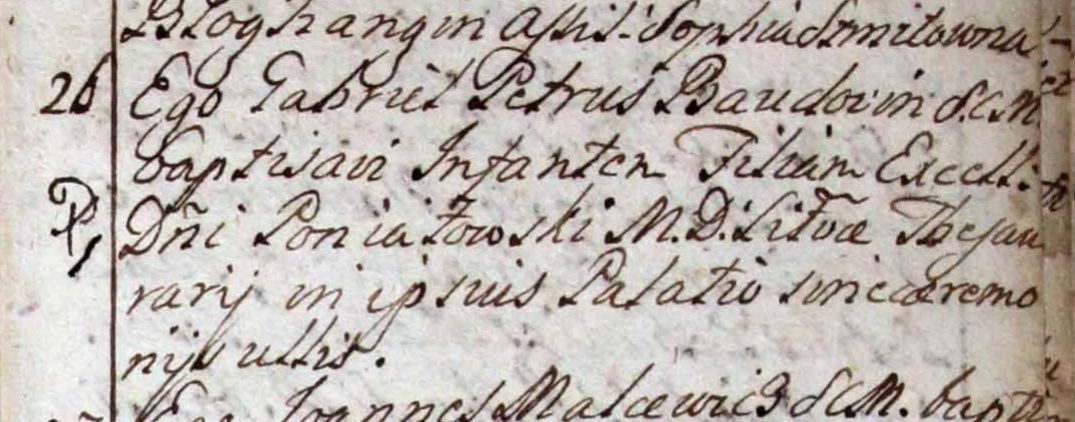 Bloghangin Assist. Sophia Szmitowna
26 Ego Gabriel Petrus Baudovin S.C.M
baptisavi Infantem Filium Excell.
P, Dñi Poniatowski M.D. Litvæ Thesau
rarij in ipsius Palatio sine cæremo
nijs ullis.
Ego Joannes Malcewicz S.C.M. bapti